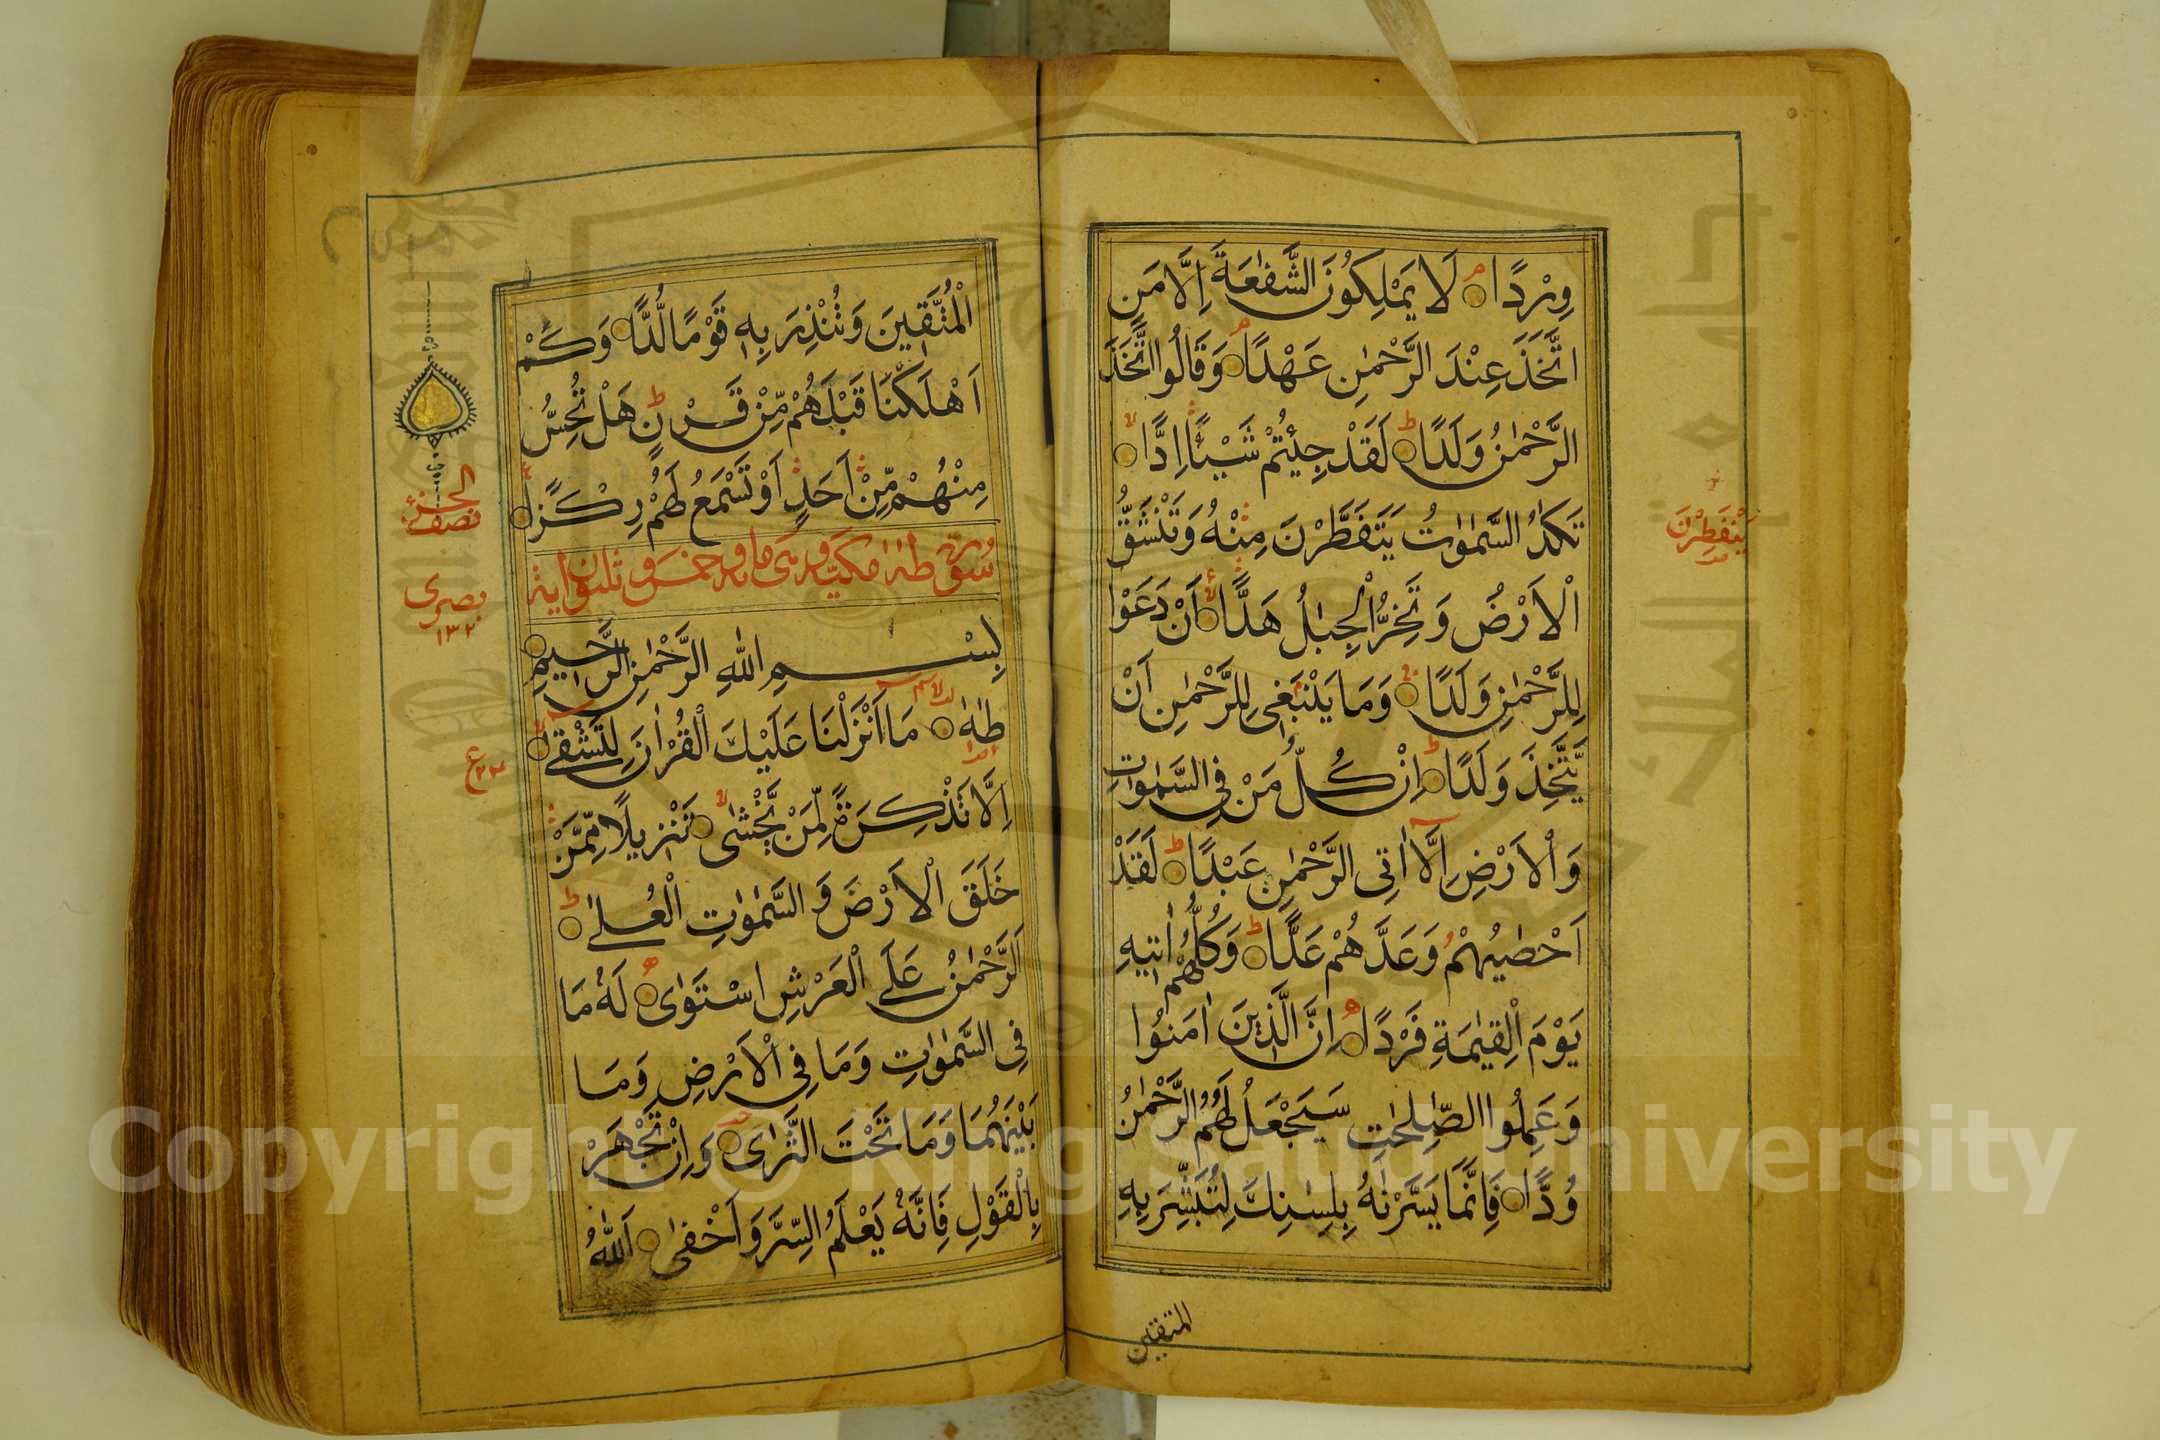 وِرْدًا لَا يَمْلِكُونَ الشَّفٰعَةَ اِلَّا مَنِ
اتَّخَذَ عِنْدَ الرَّحْمٰنِ عَهْدًا وَقَالُوا اتَّخَذَ
الرَّحْمٰنُ وَلَدًا لَقَدْ جِئْتُمْ شَيْئًا اِدًّا
تَكَادُ السَّمٰوٰتُ يَتَفَطَّرْنَ مِنْهُ وَتَنْشَقُّ
الْاَرْضُ وَتَخِرُّ الْجِبَالُ هَدًّا اَنْ دَعَوْا
لِلرَّحْمٰنِ وَلَدًا وَمَا يَنْبَغِي لِلرَّحْمٰنِ اَنْ
يَّتَّخِذَ وَلَدًا اِنْ كُلُّ مَنْ فِي السَّمٰوٰتِ
وَالْاَرْضِ اِلَّا اٰتِي الرَّحْمٰنِ عَبْدًا لَقَدْ
اَحْصٰيهُمْ وَعَدَّهُمْ عَدًّا وَكُلُّهُمْ اٰتِيهِ
يَوْمَ الْقِيٰمَةِ فَرْدًا اِنَّ الَّذِينَ اٰمَنُوا
وَعَمِلُوا الصّٰلِحٰتِ سَيَجْعَلُ لَهُمُ الرَّحْمٰنُ
وُدًّا فَاِنَّمَا يَسَّرْنٰهُ بِلِسَانِكَ لِتُبَشِّرَ بِهِ
المتقين
يَنْفَطِرْنَ
الْمُتَّقِينَ وَتُنْذِرَ بِهِ قَوْمًا لُّدًّا وَكَمْ
اَهْلَكْنَا قَبْلَهُمْ مِّنْ قَرْنٍ هَلْ تُحِسُّ
مِنْهُمْ مِّنْ اَحَدٍ اَوْ تَسْمَعُ لَهُمْ رِكْزًا
سورة طه مكية وهي مائة وخمس وثلثون اية
بِسْمِ اللّٰهِ الرَّحْمٰنِ الرَّحِيمِ
طٰهٰ مَا اَنْزَلْنَا عَلَيْكَ الْقُرْاٰنَ لِتَشْقٰى
اِلَّا تَذْكِرَةً لِّمَنْ يَّخْشٰى تَنْزِيلًا مِّمَّنْ
خَلَقَ الْاَرْضَ وَالسَّمٰوٰتِ الْعُلٰى
اَلرَّحْمٰنُ عَلَى الْعَرْشِ اسْتَوٰى لَهُ مَا
فِي السَّمٰوٰتِ وَمَا فِي الْاَرْضِ وَمَا
بَيْنَهُمَا وَمَا تَحْتَ الثَّرٰى وَاِنْ تَجْهَرْ
بِالْقَوْلِ فَاِنَّهُ يَعْلَمُ السِّرَّ وَاَخْفٰى اَللّٰهُ
نصف الجزء
بصرى
١٣٢
Copyright © King Saud University